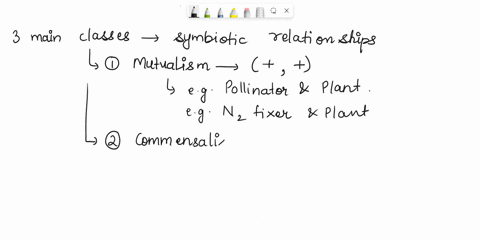 3 main classes → symbiotic relationships
① Mutualism → (+, +)
↳ e.g. Pollinator & Plant.
e.g. N₂ fixer & Plant
② Commensali